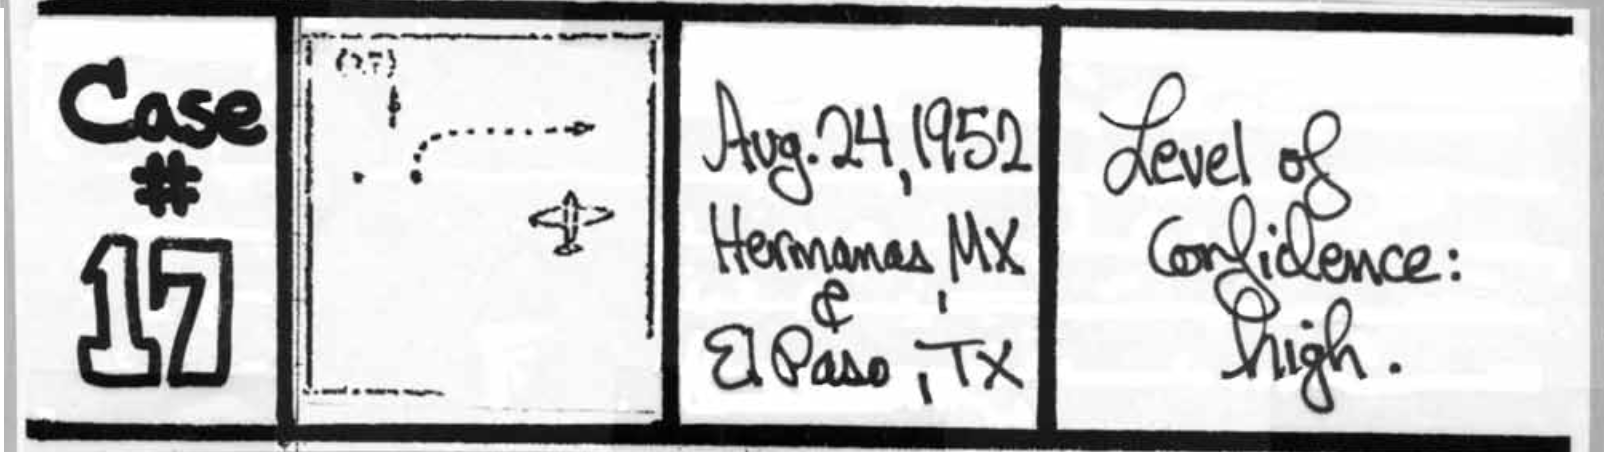 Case
#
17
Aug. 24, 1952
Hermanas, MX
&
El Paso, TX
Level of
Confidence:
high.